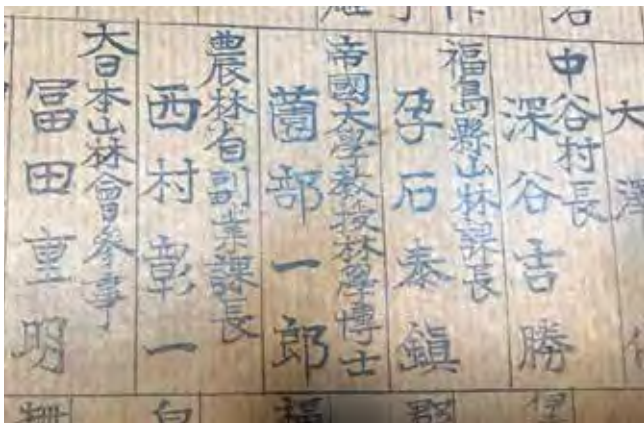 大澤
中谷村長
深谷吉勝
福島縣山林課長
孕石泰鎮
帝國大學教授林學博士
薗部一郎
農林省副業課長
西村彰一
大日本山林會参事
冨田重明